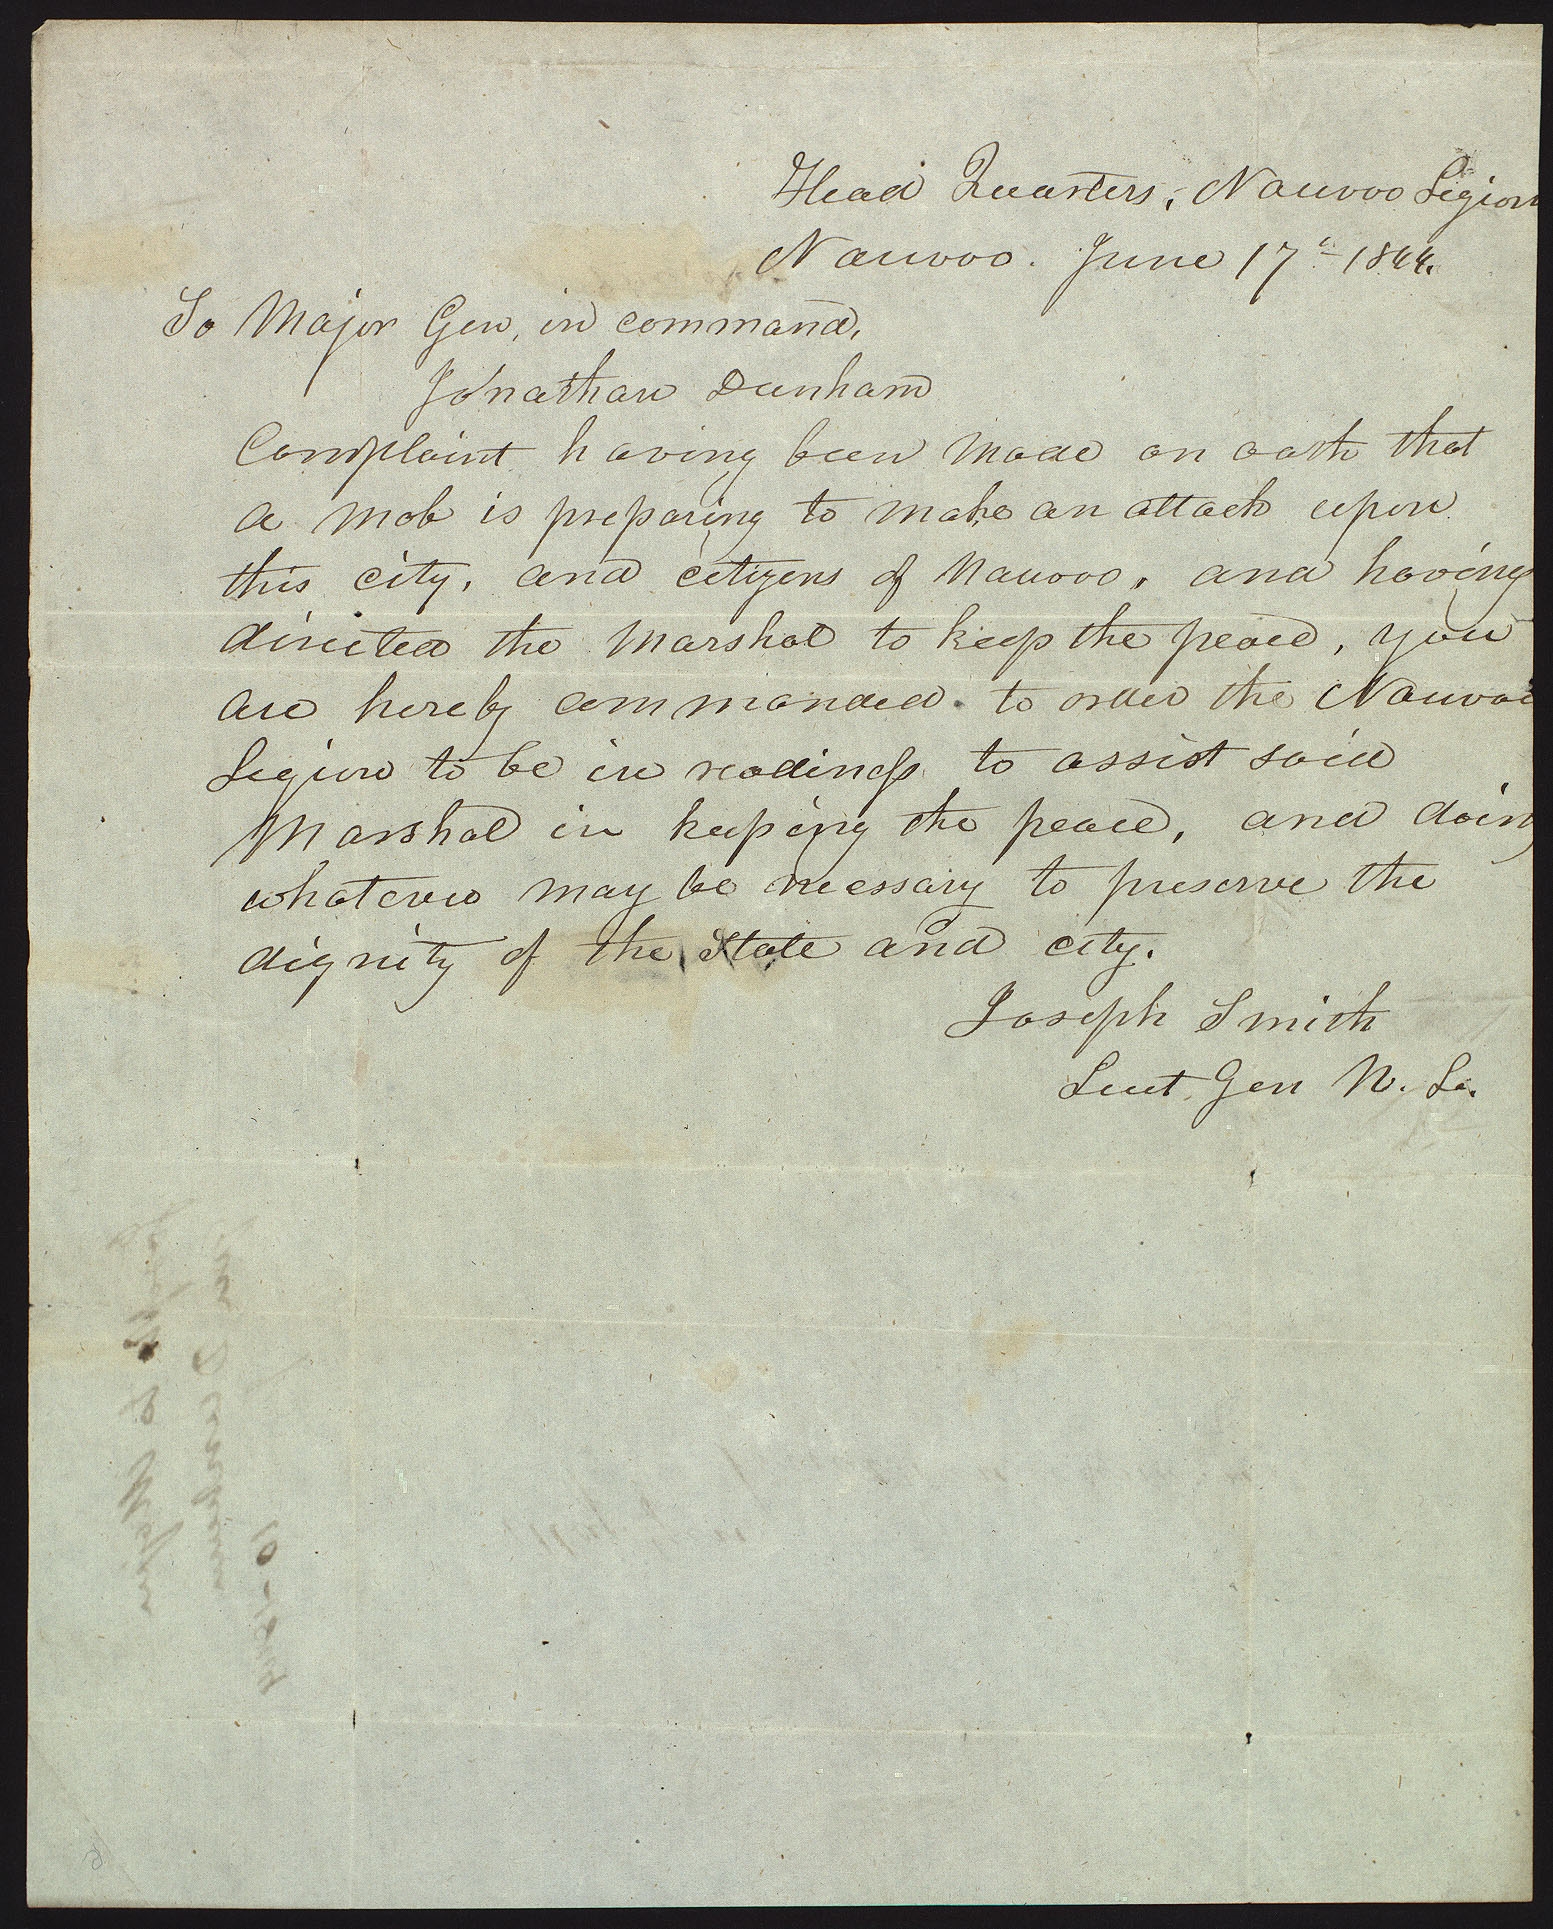 Head Quarters, Nauvoo Legion
Nauvoo. June 17th 1844.
To Major Gen, in command,
Jonathan Dunham
Complaint having been made on oath that
a mob is preparing to make an attack upon
this city, and citizens of Nauvoo, and having
directed the Marshal to keep the peace, you
are hereby commanded to order the Nauvoo
Legion to be in readiness to assist said
Marshal in keeping the peace, and doing
whatever may be necessary to preserve the
dignity of the State and city.
Joseph Smith
Lieut Gen N. L.